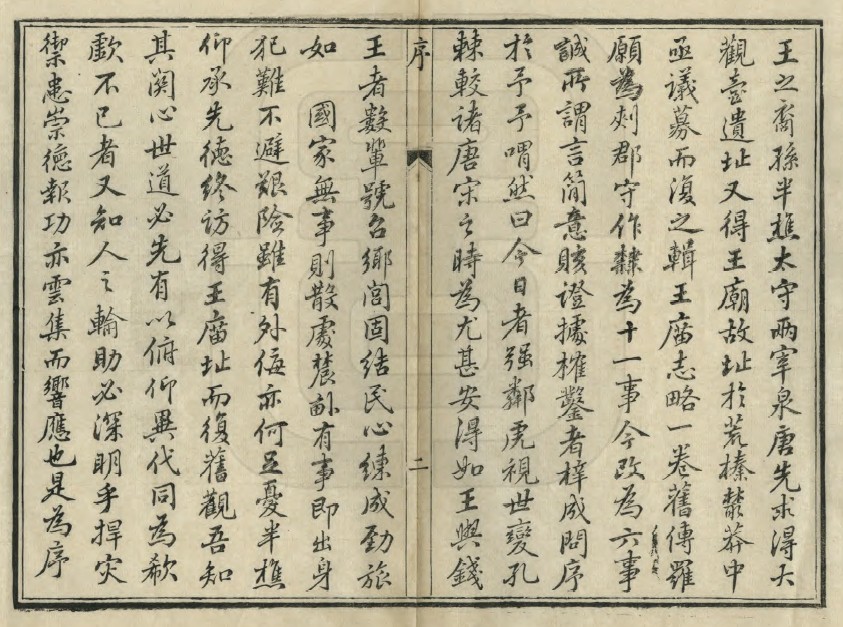 王之裔孫半樵太守兩宰泉唐先求得大
觀臺遺址又得王廟故址於荒榛叢莽中
亟議募而復之輯王廣志略一卷舊傳羅
願為剡郡守作隸為十一事今改為六事
誠所謂言簡意賅證據榷鑿者梓成問序
於予予喟然曰今日者强鄰虎視世變孔
棘較諸唐宋之時為尤甚安得如王與錢
序
二
王者數輩號召鄉閭固結民心練成勁旅
如 國家無事則散處農畝有事即出身
犯難不避艱險雖有外侮亦何足憂半樵
仰承先德終訪得王廟址而復舊觀吾知
其關心世道必先有以俯仰異代同為欷
歔不已者又知人之輪助必深明乎捍灾
禦患崇德報功亦雲集而響應也是為序